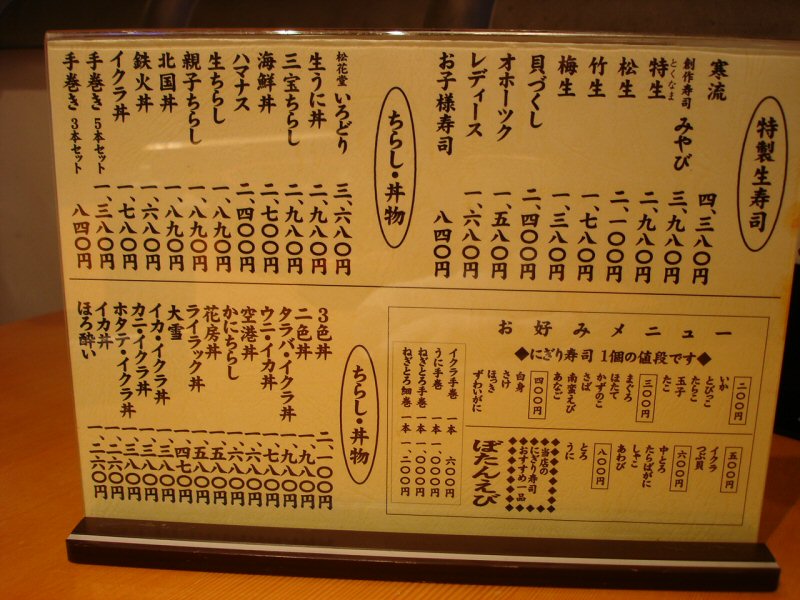 特製生寿司
寒流 四、三八〇円
創作寿司 みやび 三、九八〇円
特生 とくなま 二、九八〇円
松生 二、一〇〇円
竹生 一、七八〇円
梅生 一、三八〇円
貝づくし 二、四〇〇円
オホーツク 一、五八〇円
レディース 一、六八〇円
お子様寿司 八四〇円
ちらし・丼物
松花堂 いろどり 三、六八〇円
生うに丼 二、九八〇円
三宝ちらし 二、九八〇円
海鮮丼 二、七〇〇円
ハマナス 二、四〇〇円
生ちらし 一、八九〇円
親子ちらし 一、八九〇円
北国丼 一、八九〇円
鉄火丼 一、六八〇円
イクラ丼 一、七八〇円
手巻き 5本セット 一、三八〇円
手巻き 3本セット 八四〇円
お好みメニュー
◆にぎり寿司 1個の値段です◆
二〇〇円
いか
とびっこ
たらこ
玉子
たこ
三〇〇円
まぐろ
ほたて
かずのこ
さば
南蛮えび
あなご
四〇〇円
白身
さけ
ほっき
ずわいがに
五〇〇円
イクラ
つぶ貝
六〇〇円
中とろ
たらばがに
しゃこ
あわび
八〇〇円
とろ
うに
当店の
にぎり寿司
おすすめ一品
ぼたんえび
イクラ手巻 一本 六〇〇円
うに手巻 一本 一、〇〇〇円
ねぎとろ手巻 一本 一、〇〇〇円
ねぎとろ細巻 一本 一、二〇〇円
ちらし・丼物
3色丼 二、一〇〇円
二色丼 一、九八〇円
タラバ・イクラ丼 一、九八〇円
ウニ・イカ丼 一、七八〇円
空港丼 一、六八〇円
かにちらし 一、六八〇円
花房丼 一、五八〇円
ライラック丼 一、五八〇円
大雪 一、四七〇円
イカ・イクラ丼 一、三八〇円
カニ・イクラ丼 一、三八〇円
ホタテ・イクラ丼 一、三八〇円
イカ丼
ほろ酔い 一、二六〇円